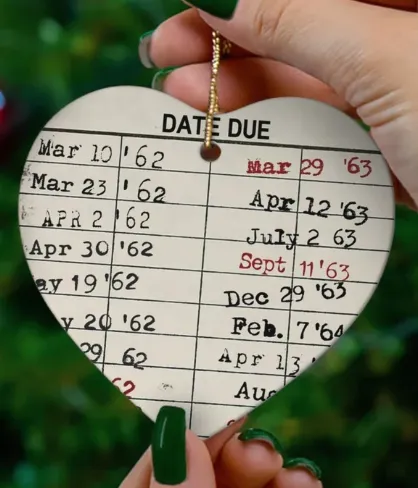 DATE DUE
Mar 10 '62
Mar 23 '62
APR 2 '62
Apr 30 '62
ay 19 '62
y 20 '62
29 62
62
Mar 29 '63
Apr 12 '63
July 2 63
Sept 11 '63
Dec 29 '63
Feb. 7 '64
Apr 13 '
Au